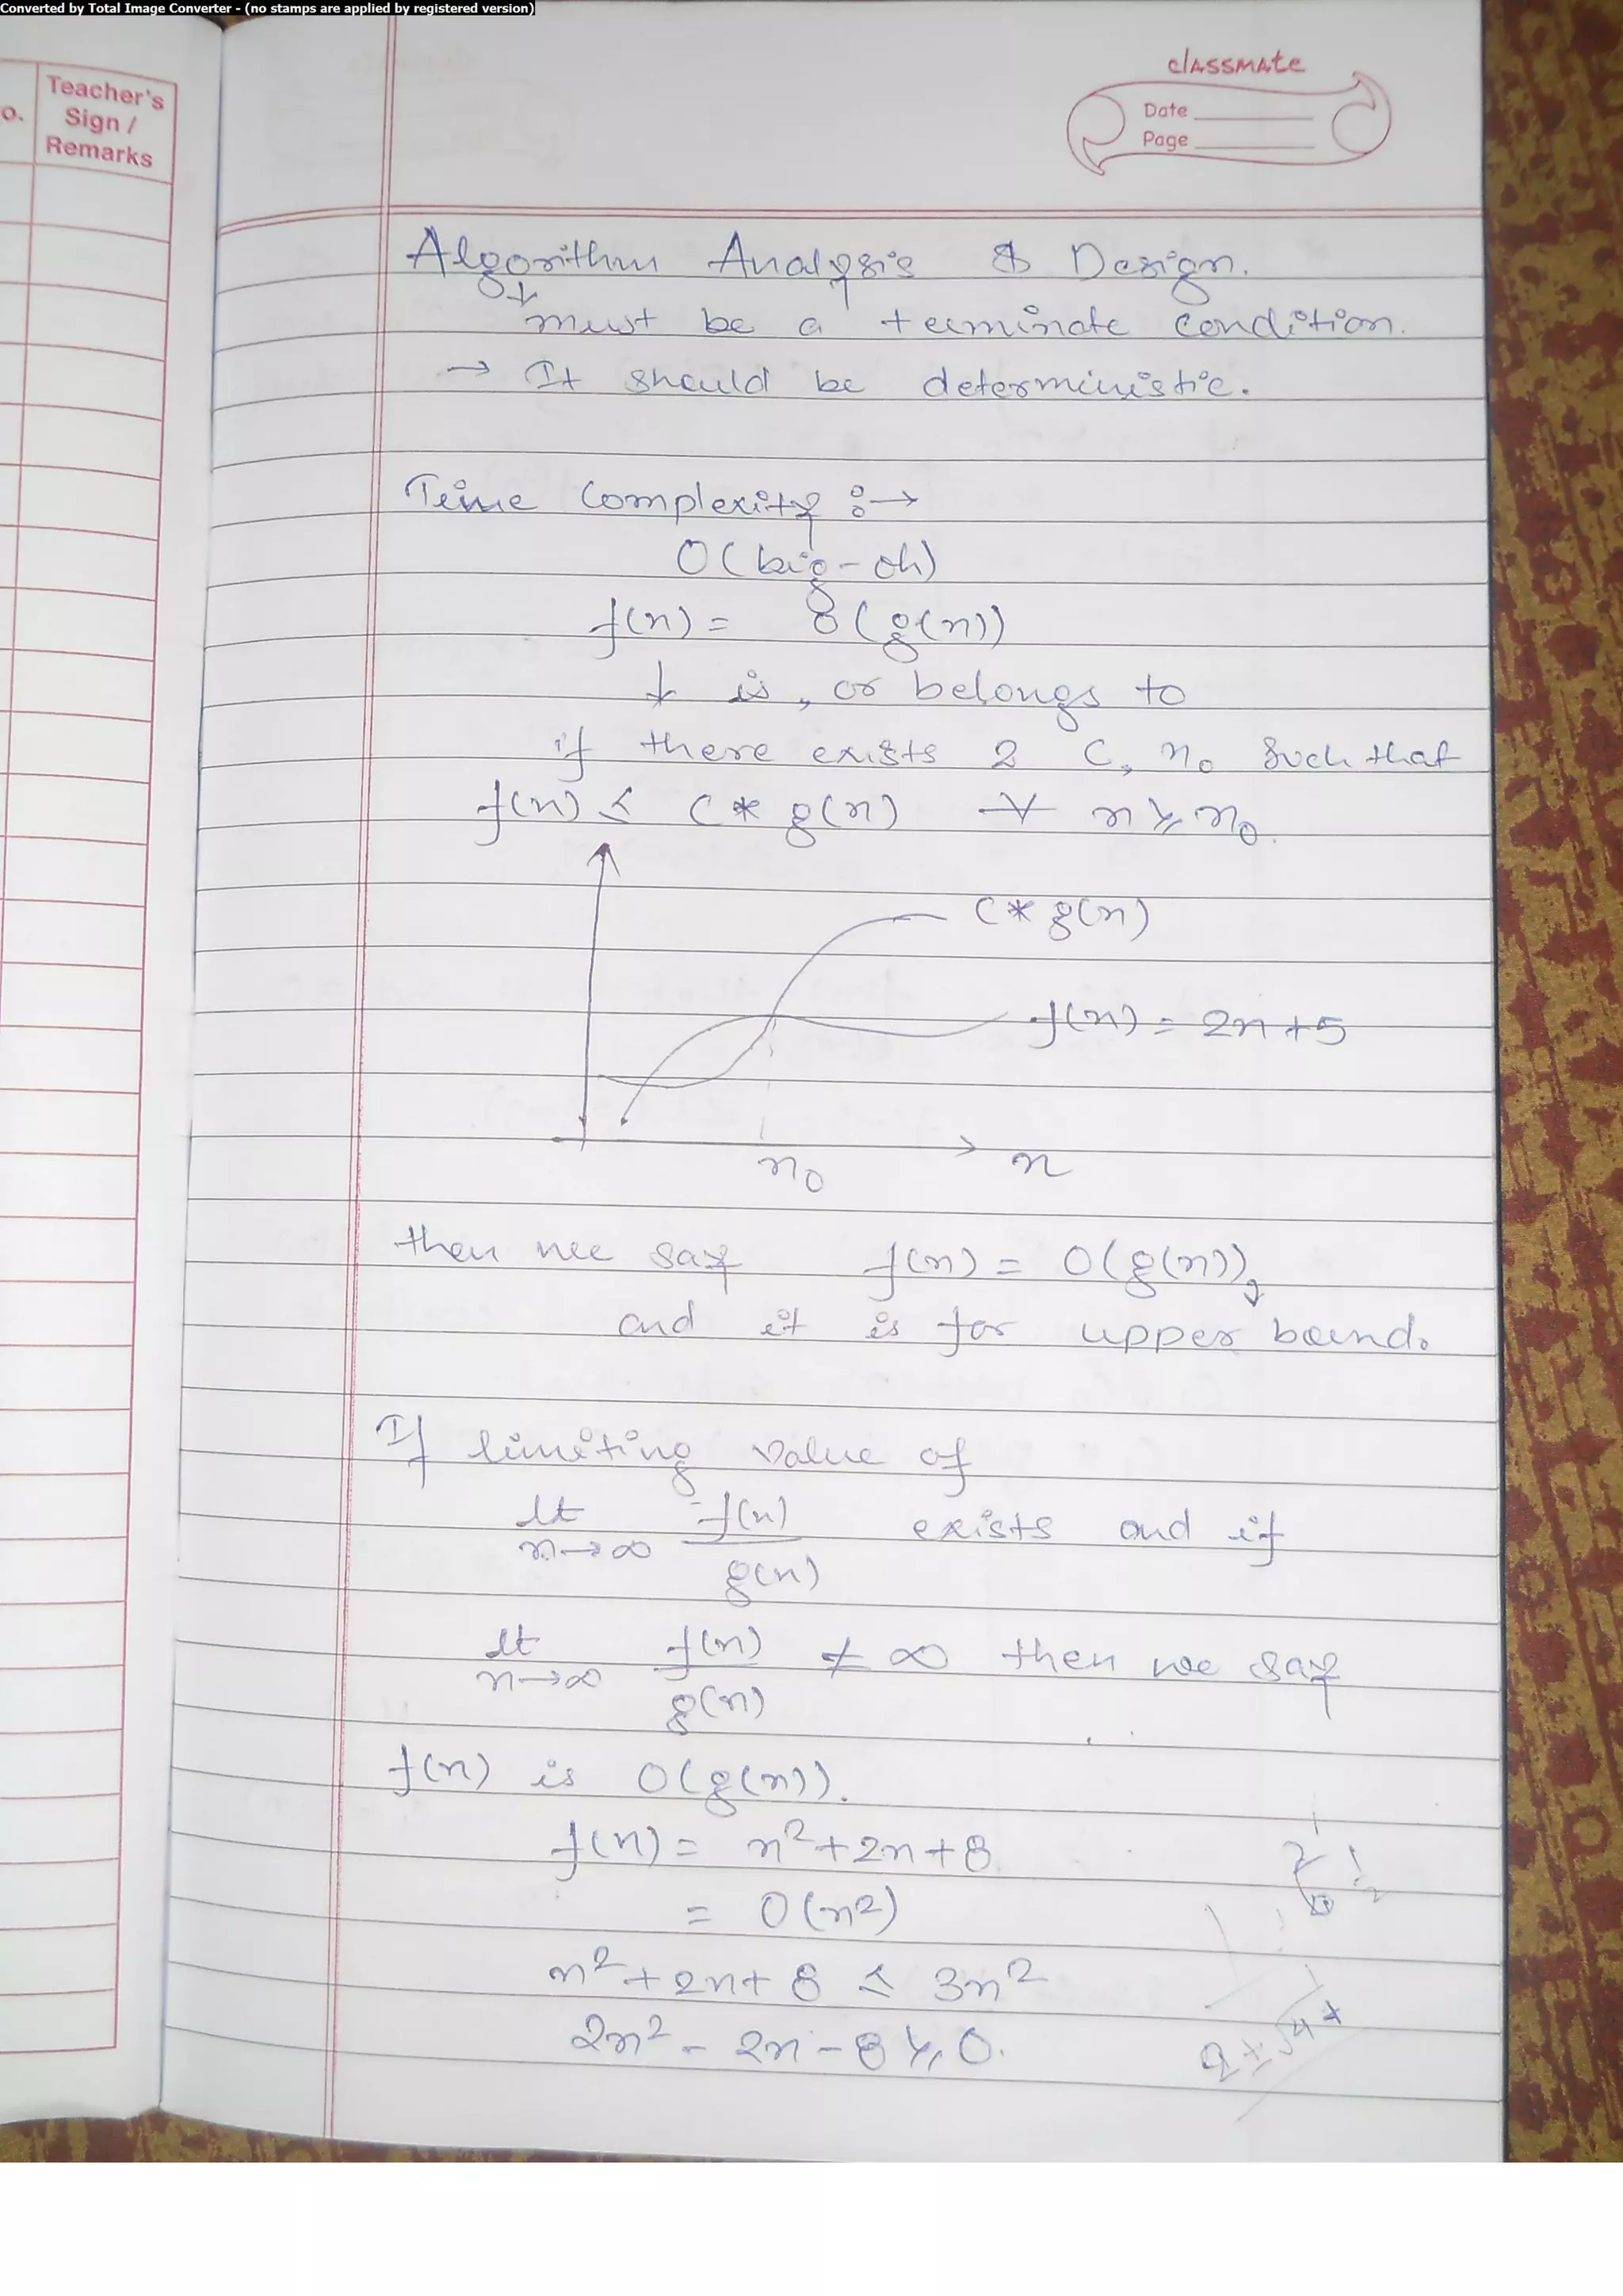 Converted by Total Image Converter - (no stamps are applied by registered version)
o.
Teacher's
Sign /
Remarks
classmate
Date
Page
Algorithm Analysis & Design.
must be a terminate condition.
→ It should be deterministic.
Time Complexity :→
O(big-oh)
f(n) = O(g(n))
is, or belongs to
if there exists 2 C, n₀ such that
f(n) ≤ C * g(n) ∀ n ≥ n₀.
C * g(n)
f(n) = 2n + 5
n₀ n
then we say f(n) = O(g(n)),
and it is for upper bound.
If limiting value of
lt n→∞ f(n)/g(n) exists and if
lt n→∞ f(n)/g(n) ≠ ∞ then we say
f(n) is O(g(n)).
f(n) = n² + 2n + 8
= O(n²)
n² + 2n + 8 ≤ 3n²
2n² - 2n - 8 ≥ 0.